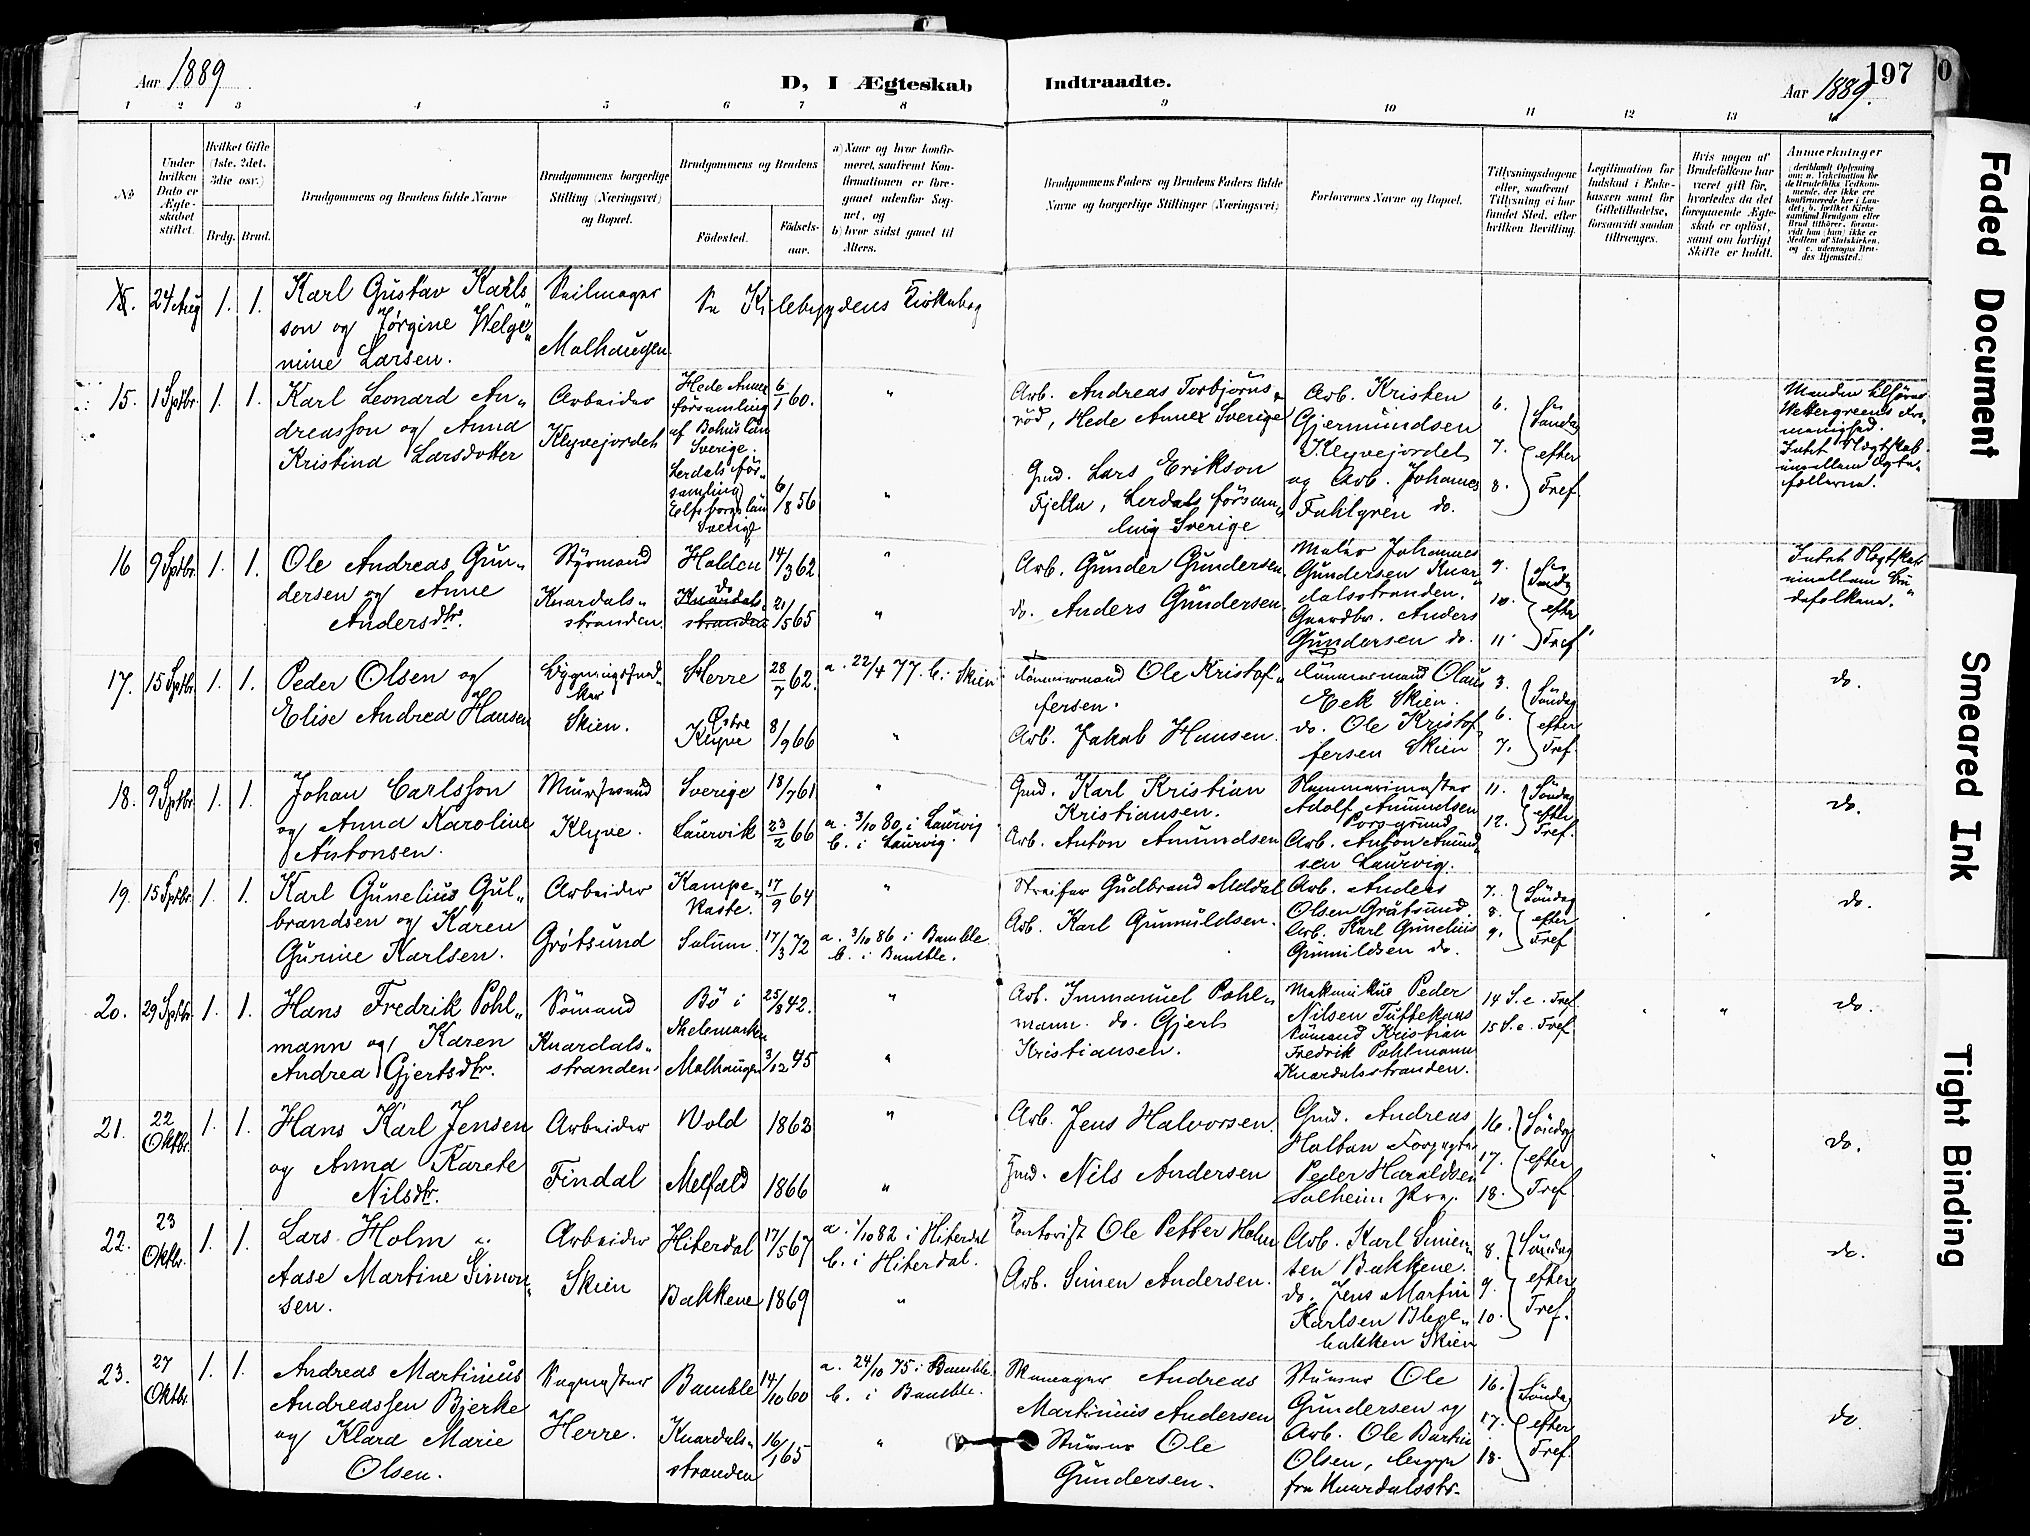 Aar 1889
D, I Ægteskab Indtraadte.
Aar 1889. 197
0
1 2 3 4 5 6 7 8 9 10 11 12 13 14
No
Under hvilken Dato er Ægteskabet stiftet.
Hvilket Gifte (1ste, 2det, 3die osv.)
Brdg. Brud.
Brudgommens og Brudens fulde Navne
Brudgommens borgerlige Stilling (Næringsvei) og Bopæl.
Brudgommens og Brudens
Fødested.
Fødselsaar.
a) Naar og hvor konfirmeret, saafremt Konfirmationen er foregaaet udenfor Sognet, og
b) hvor sidst gaaet til Alters.
Brudgommens Faders og Brudens Faders fulde Navne og borgerlige Stillinger (Næringsvei)
Forlovernes Navne og Bopæl.
Tillysningsdagene eller, saafremt Tillysning ei har fundet Sted, efter hvilken Bevilling.
Legitimation for Indskud i Enkekassen samt for Giftetilladelse, forsaavidt saadan tiltrænges.
Hvis nogen af Brudefolkene har været gift før, hvorledes da det foregaaende Ægteskab er opløst, samt om lovligt Skifte er holdt.
Anmerkninger
24 Aug 1. 1. Karl Gustav Karlsson og Jørgine Welgemine Larsen.
Seilmager
Malhaugen
Se Kilebygdens Kirkebog
15. 1 Sptbr. 1. 1. Karl Leonard Andreasson og Anna Kristina Larsdotter
Arbeider
Klyvejordet
Hede Annex församling af Bohus län Sverige. 6/1 60. "
Lerdals församling Elfsborgs län Sverige 6/8 56 "
Arb. Andreas Torbjörnsröd, Hede Annex Sverige
Gmd. Lars Erikson Fjella, Lerdals församling Sverige
Arb. Kristen Gjermundsen Klyvejordet og Arb. Johannes Fahlgren do.
6. 7. 8. Sön
dag efter Tref
Manden tilhører Wettergreens Frimenighed. Intet Slægtskab imellem Ægtefællerne.
16 9 Sptbr. 1. 1. Ole Andreas Gundersen og Anne Andersdtr.
Styrmand
Knardalsstranden.
Halden 14/3 62 "
do Knardalsstranden 21/5 65 "
Arb. Gunder Gundersen
do. Anders Gundersen
Maler Johannes Gundersen Knardalsstranden. Gaardbr. Anders Gundersen do.
9. 10. 11. Søndag efter Tref
Intet Slægtskab imellem Brudefolkene.
17. 15 Sptbr. 1. 1. Peder Olsen og Elise Andrea Hansen
Bygningssnedker
Skien.
Herre 28/7 62. a. 22/4 77. b. i Skien
Østre Klyve 8/9 66 "
Tømmermand Ole Kristoffersen.
Arb. Jakob Hansen.
Tömmermand Olaus Eek Skien.
do. Ole Kristoffersen Skien
3. 6. 7. Söndag efter Tref.
do.
18. 9 Sptbr. 1. 1. Johan Carlsson og Anna Karoline Antonsen.
Muursvend
Klyve.
Sverige 18/7 61 "
Laurvik 23/2 66 a. 3/10 80 i Laurvig b. i Laurvig.
Gmd. Karl Kristian Kristiansen.
Arb. Anton Amundsen
Adolf Amundsen Porsgrund
Arb. Anton Amundsen Laurvig.
11. 12. Söndag efter Tref.
do.
19. 15 Sptbr. 1. 1. Karl Gunelius Gulbrandsen og Karen Gurine Karlsen.
Arbeider
Grøtsund
Kampekaste. 17/9 64 "
Solum. 17/3 72 a. 3/10 86 i Bamble. b. i Bamble.
Gudbrand Meldal
Arb. Karl Gunuldsen.
Arb. Anders Olsen Grøtsund. Arb. Karl Gunelius Gunuldsen do.
7. 8. 9. Söndag efter Tref
do.
20. 29 Sptbr. 1. 1. Hans Fredrik Pohlmann og Karen Andrea Gjertsdtr.
Sømand
Knardalsstranden.
Bö i Thelemarken 25/8 42. "
Malhaugen 3/12 45 "
Arb. Immanuel Pohlmann. do. Gjert Kristiansen.
Mekanikus Peder Nilsen Tuftekaas
Sömand Kristian Fredrik Pohlmann Knardalsstranden.
14 S. e. Tref.
15 S. e. Tref.
do.
21. 22 Oktbr. 1. 1. Hans Karl Jensen og Anna Karete Nilsdtr.
Arbeider
Findal
Vold 1863 "
Melfald 1866 "
Arb. Jens Halvorsen.
Gmd. Nils Andersen
Gmd. Andreas Haltan Forpagter Peder Haraldsen Solheim
16. 17. 18. Söndag efter Tref
do.
22. 23 Oktbr. 1. 1. Lars Holm og Aase Martine Simonsen.
Arbeider
Skien
Hiterdal 17/5 67 a. 1/10 82 i Hiterdal b. i Hiterdal.
Bakkene 1869 "
Kontorist Ole Petter Holm
Arb. Simen Andersen.
Arb. Karl Simensen Bakkene.
do. Jens Martin Karlsen Blegebakken Skien
8. 9. 10. Söndag efter Tref.
do.
23. 27 Oktbr. 1. 1. Andreas Martinius Andreassen Bjerke og Klara Marie Olsen.
Sagmester
Herre.
Bamble 14/10 60 a. 24/10 75 i Bamble. b. i Bamble.
Knardalsstranden 16/1 65 "
Skomager Andreas Martinius Andersen
Stuerer Ole Gundersen.
Stuerer Ole Gundersen og Arb. Ole Bartin Olsen, begge fra Knardalsstr.
16. 17. 18. Söndag efter Tref.
do
Faded Document
Smeared Ink
Tight Binding